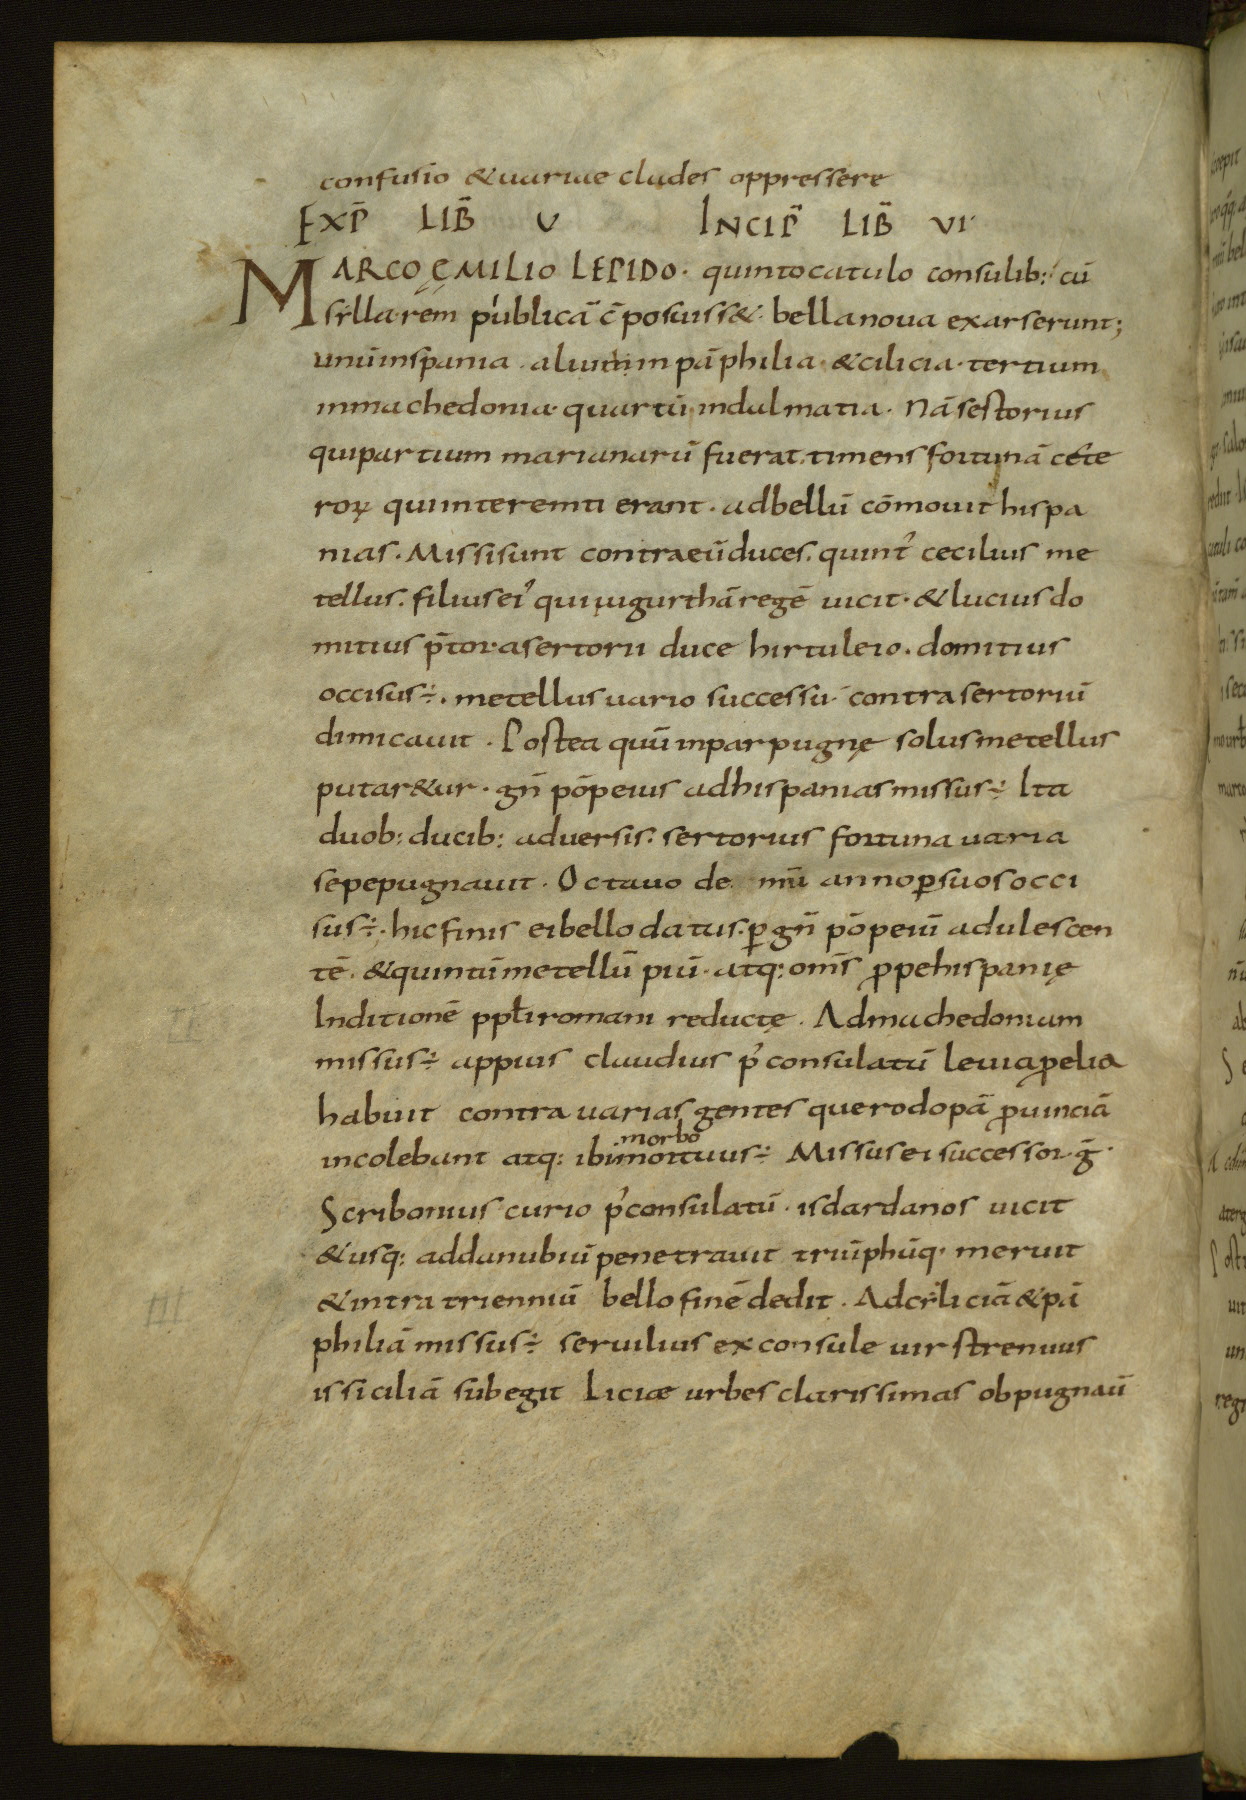 confusio & uariae clades oppressere
EXP̄ LIB̄ V INCIP̄ LIB̄ VI
MARCO ĘMILIO LEPIDO· quinto catulo consulib: cū
sylla rem publicā c̄posuiss& bella noua exarserunt;
unū inspania . aliud in pāphilia · & cilicia · tertium
in machedonia· quartū in dalmatia · Nā sertorius
qui partium marianarū fuerat, timens fortunā cete
roꝝ qui interemti erant · ad bellū cōmouit hispa
nias · Missi sunt contra eū duces. quint᾽ cecilius me
tellus. filius ei᾽ qui iugurthā regē uicit · & lucius do
mitius p̄tor· a sertorii duce hirtuleio · domitius
occisus ÷ . metellus uario successu contra sertoriū
dimicauit · Postea quū inpar pugnę solus metellus
putar&ur · gn̄ pōpeius ad hispanias missus ÷ Ita
duob: ducib: aduersis. sertorius fortuna uaria
sepe pugnauit · Octauo de mū anno ꝑ suos occi
sus ÷ · hic finis ei bello datus. ꝑ gn̄ pōpeiū adulescen
tē · & quintū metellū piū · atq: om̄s ꝓpe hispanię
In ditionē pp̄li romani reductę . Ad machedoniam
missus ÷ appius claudius p᾽ consulatū leuia ꝓelia
habuit contra uarias gentes que rodopā ꝓuinciā
incolebant atq: ibi morbo mortuus ÷ Missus ei successor · ḡ ·
Scribonius curio p᾽ consulatū · is dardanos uicit
& usq: ad danubiū penetrauit triūphūq· meruit
& intra trienniū bello finē dedit . Ad cyliciā & pā
philiā missus ÷ seruilius ex consule uir strenuus
is siciliā subegit Liciæ urbes clarissimas obpugnaū